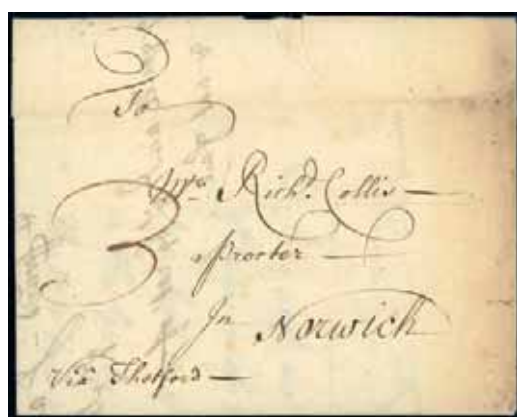 To
Mr. Richd. Collis
3
Procter
In Norwich
Via Thetford